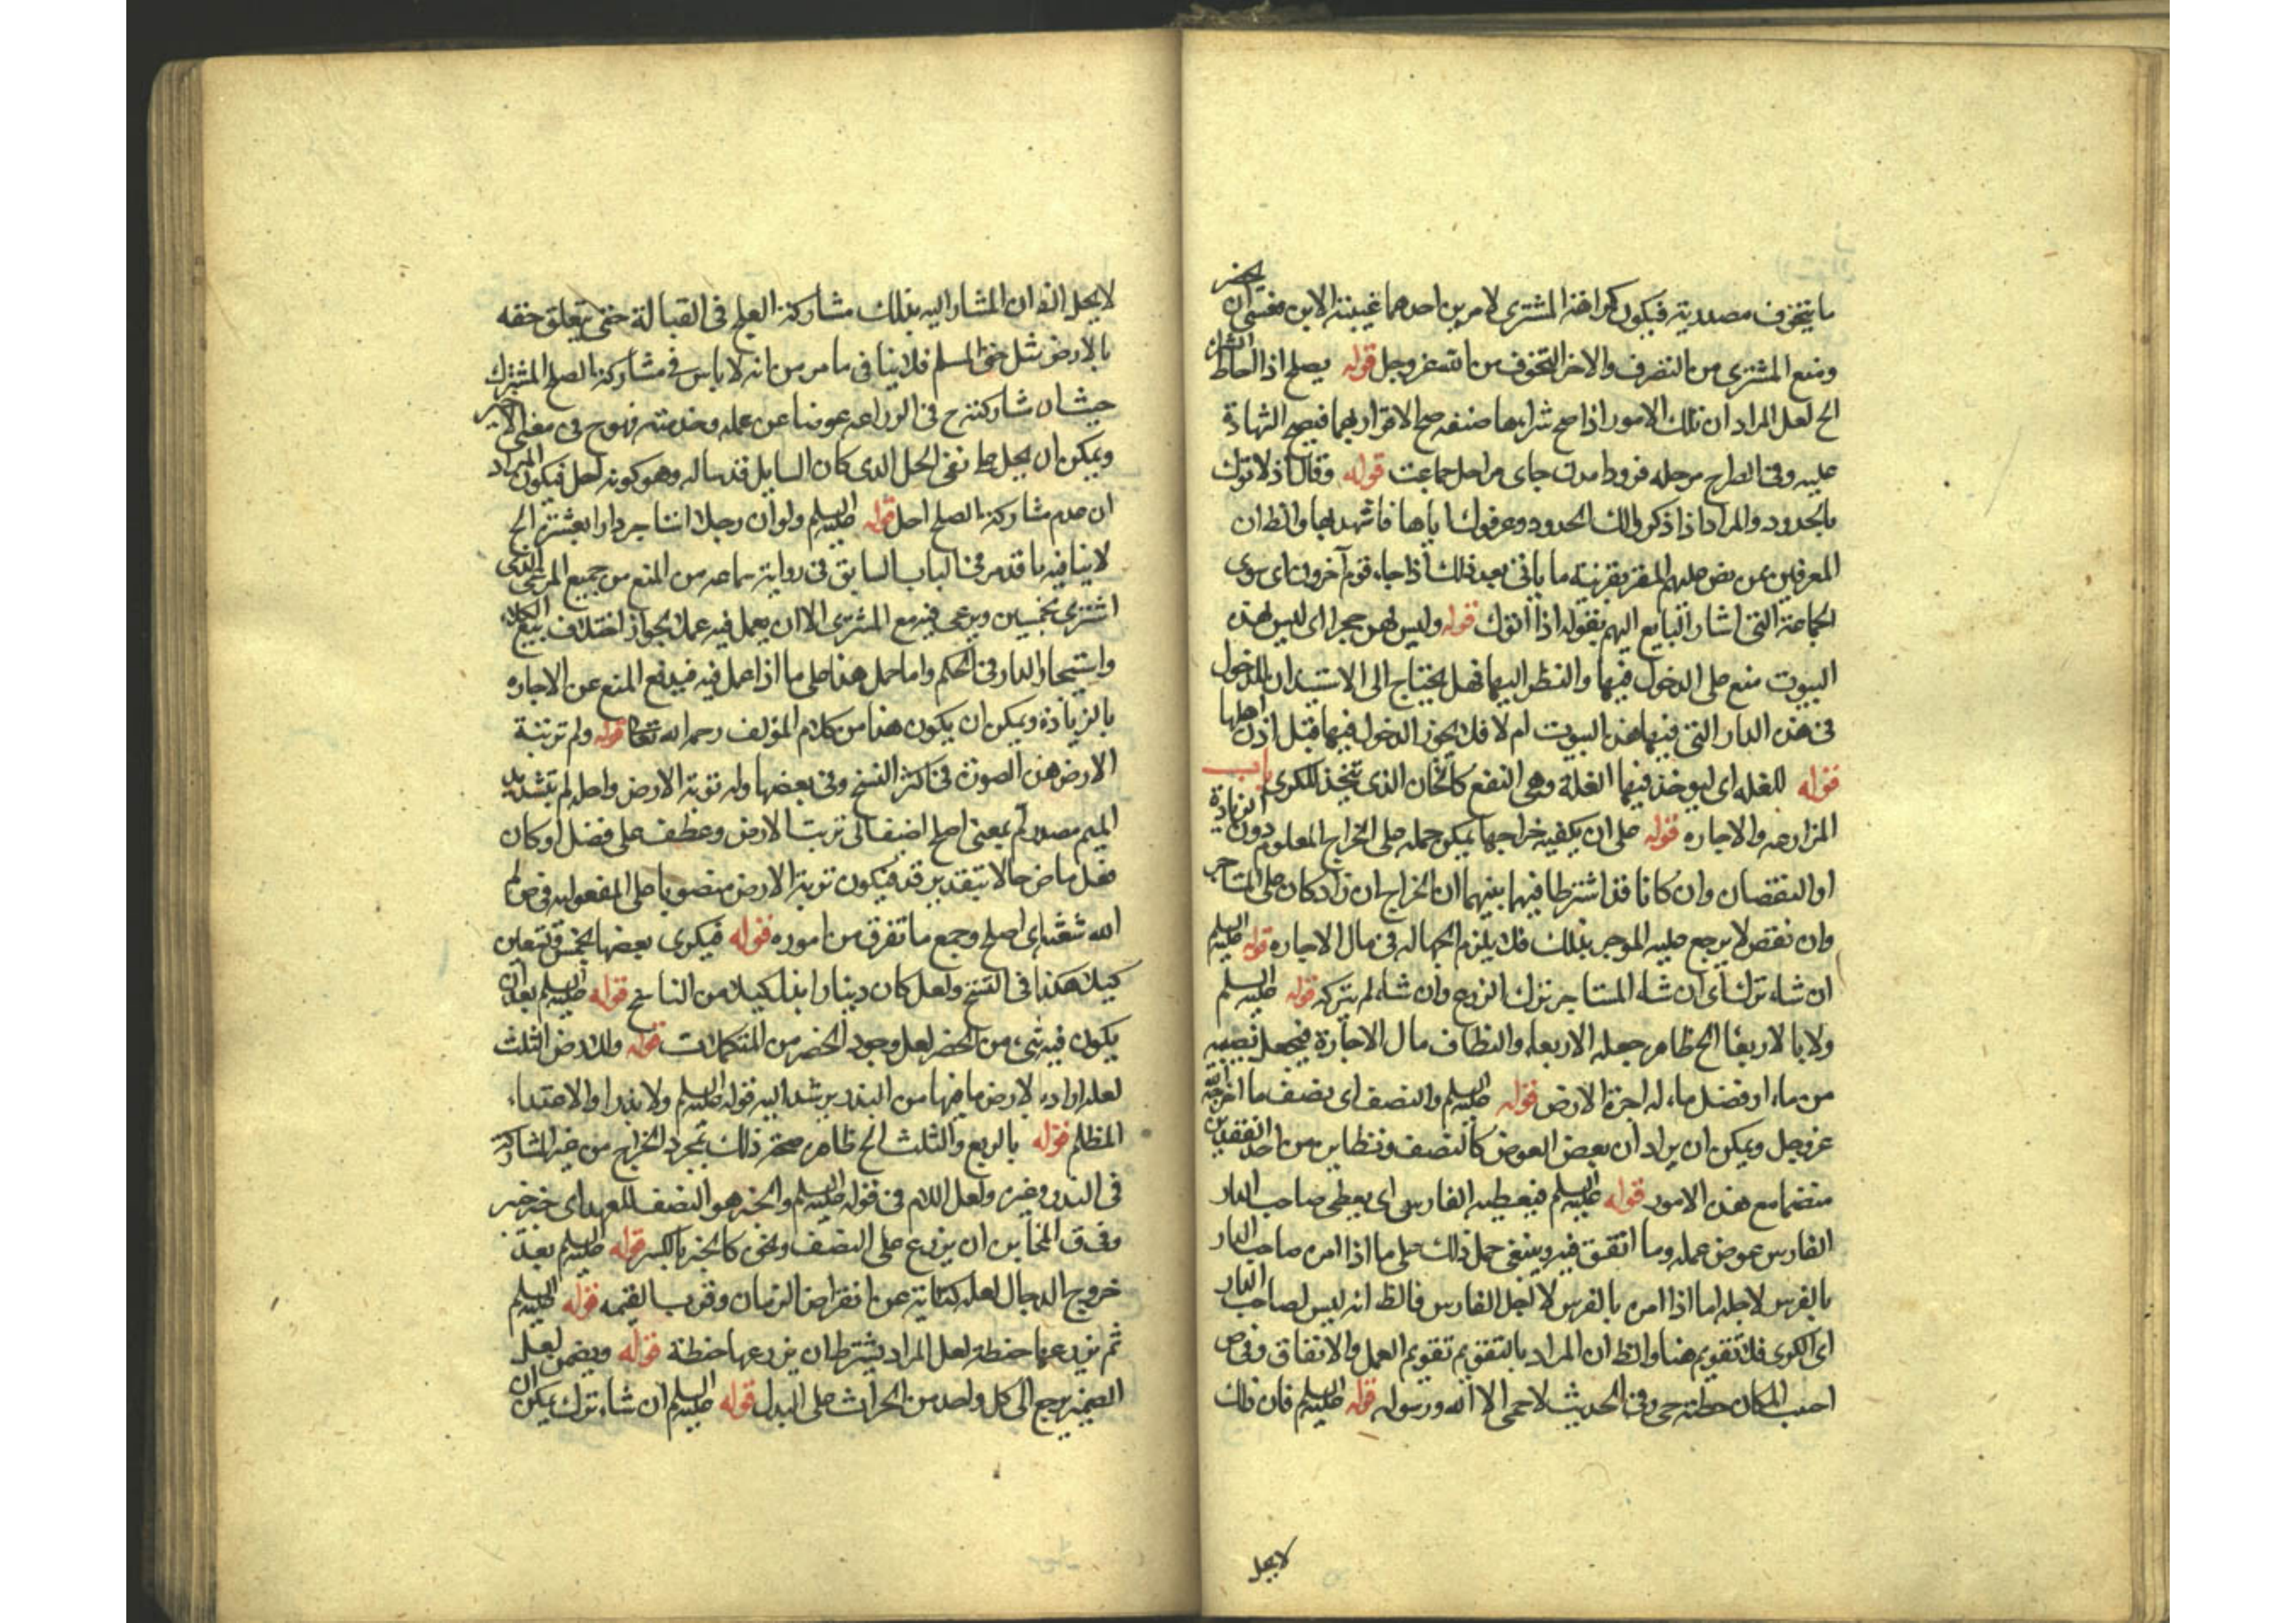 ما يتخوف مصدرية فيكون كراهة المشترى لامرين احدهما غيبة الابن فعسى ان
ومنع المشترى من التصرف والاخر التخوف من الله عز وجل قوله يصلح اذا
الخ لعل المراد ان تلك الامور اذا صح شراءها صفقة صح الاقرار بها فيصح الشهادة
عليه وفى الصراح مرحله فرود امدن جاى مراحل جماعت قوله وقال اذا اتوك
بالحدود والمراد اذا ذكر والك الحدود وعرفوك اياها فاشهد لها والظ ان
المعرفين من نص عليهم المقر بقرينة ما ياتى بعد ذلك اذا جاء قوم آخرون اى سوى
الجماعة التى اشار البايع اليهم بقوله اذا اتوك قوله وليس لهن حجر اى ليس لهذه
البيوت منع على الدخول فيها والنظر اليها فهل يحتاج الى الاستيذان للدخول
فى هذه الدار التى فيها هذه البيوت ام لا فلا يجوز الدخول فيها قبل اذن اهلها
قوله للغله اى ليوخذ فيها الغلة وهى النفع كالخان الذى يتخذ للكرى باب
المزارعه والاجاره قوله على ان يكفيه خراجها يمكن حمله على الخراج المعلوم دون الزيادة
او النقصان وان كانا قد اشترطا فيها بينهما ان الخراج ان زاد كان على المستاجر
وان نقص لا يرجع عليه الموجر بذلك فلا يلزم الجهاله فى مال الاجاره قوله عليه السلم
ان شاء ترك اى ان شاء المستاجر ترك الزرع وان شاء لم يتركه قوله عليه السلم
ولا بالاربعا الخ ظاهره جعله الاربعاء والنطاف مال الاجارة فيجعل نصيبه
من ماء او فضل ماء له اجرة الارض قوله عليه السلم والنصف اى نصف ما اخرجه الله
عز وجل ويمكن ان يراد ان بعض العوض كالنصف ونظايره من احد النقدين
منضما مع هذه الامور قوله عليه السلم فيعطيه الفارس اى يعطى صاحب الدار
الفارس عوض عمله وما انفق فيه وينبغى حمل ذلك على ما اذا امره صاحب الدار
بالغرس لاجله اما اذا امره بالغرس لا لاجل الفارس فالظ انه ليس لصاحب الدار
اى الكرى فلا تقويم هنا والظ ان المراد بالتقويم تقويم العمل والانفاق وفى ص
احميت المكان جعلته حمى وفى الحديث لا حمى الا لله ورسوله قوله عليه السلم فان ذلك
لا يحل
لا يحل الظ ان المشار اليه بذلك مشاركة العلج فى القبالة حتى يتعلق حقه
بالارض مثل حق المسلم فلا ينافى ما مر من انه لا باس فى مشاركة العلج المشترك
حيث ان مشاركته ح فى الزراعه عوضا عن عمله وخدمته فهو ح فى معنى الاجير
ويمكن ان يحمل على نفى الحل الذى كان السايل قد ساله وهو كونه احل فيكون المراد
ان عدم مشاركة العلج احل قوله عليه السلم ولو ان رجلا استاجر دارا بعشرة الخ
لا ينافيه ما قد مر فى الباب السابق فى رواية سماعه من المنع من جميع المرعى الذى
اشترى بخمسين ويرعى فيه مع المشترى الا ان يعمل فيه عملا لجواز اختلاف بيع الكلاء
واستيجار الدار فى الحكم واما حمل هذا على ما اذا عمل فيه فيدفع المنع عن الاجاره
بالزيادة ويمكن ان يكون هذا من كلام المؤلف رحمه الله تعالى قوله ولم تربتة
الارض هذه الصورة فى اكثر النسخ وفى بعضها وله تربة الارض واصله لم بتشديد
الميم مصدر لم بمعنى اصلح اضيف الى تربت الارض وعطف على فضل او كان
فعل ماض حالا بتقدير قد فيكون تربة الارض منصوبا على المفعوليه فى ص لم
الله شعثه اى اصلح وجمع ما تفرق من اموره قوله فيكرى بعضها بخمس وتسعين
كيلا هكذا فى النسخ ولعل كان دينارا بدل كيلا من الناسخ قوله عليه السلم بعد ان
يكون فيه شىء من الخضر لعل وجود الخضر من المتكملات قوله وللارض الثلث
لعله اراد بالارض ما فيها من البذر يرشد اليه قوله عليه السلم ولا بذرا والاعتداء
المظلم قوله بالربع والثلث الخ ظاهره صحة ذلك بمجرد الخراج من غير المشاركة
فى البذر وغيره ولعل اللام فى قوله عليه السلم والخبر هو النصف للعهد اى خبر خيبر
وفى ق المخابرة ان يزرع على النصف ونحوه كالخبر بالكسر قوله عليه السلم بعد
خروج الدجال لعله كناية عن انقراض الزمان وقرب القيمه قوله عليه السلم
ثم يزرعها حنطة لعل المراد يشترط ان يزرعها حنطة قوله ويضمن لعل
الضمير يرجع الى كل واحد من الحراث على البدل قوله عليه السلم ان شاء ترك يمكن ان